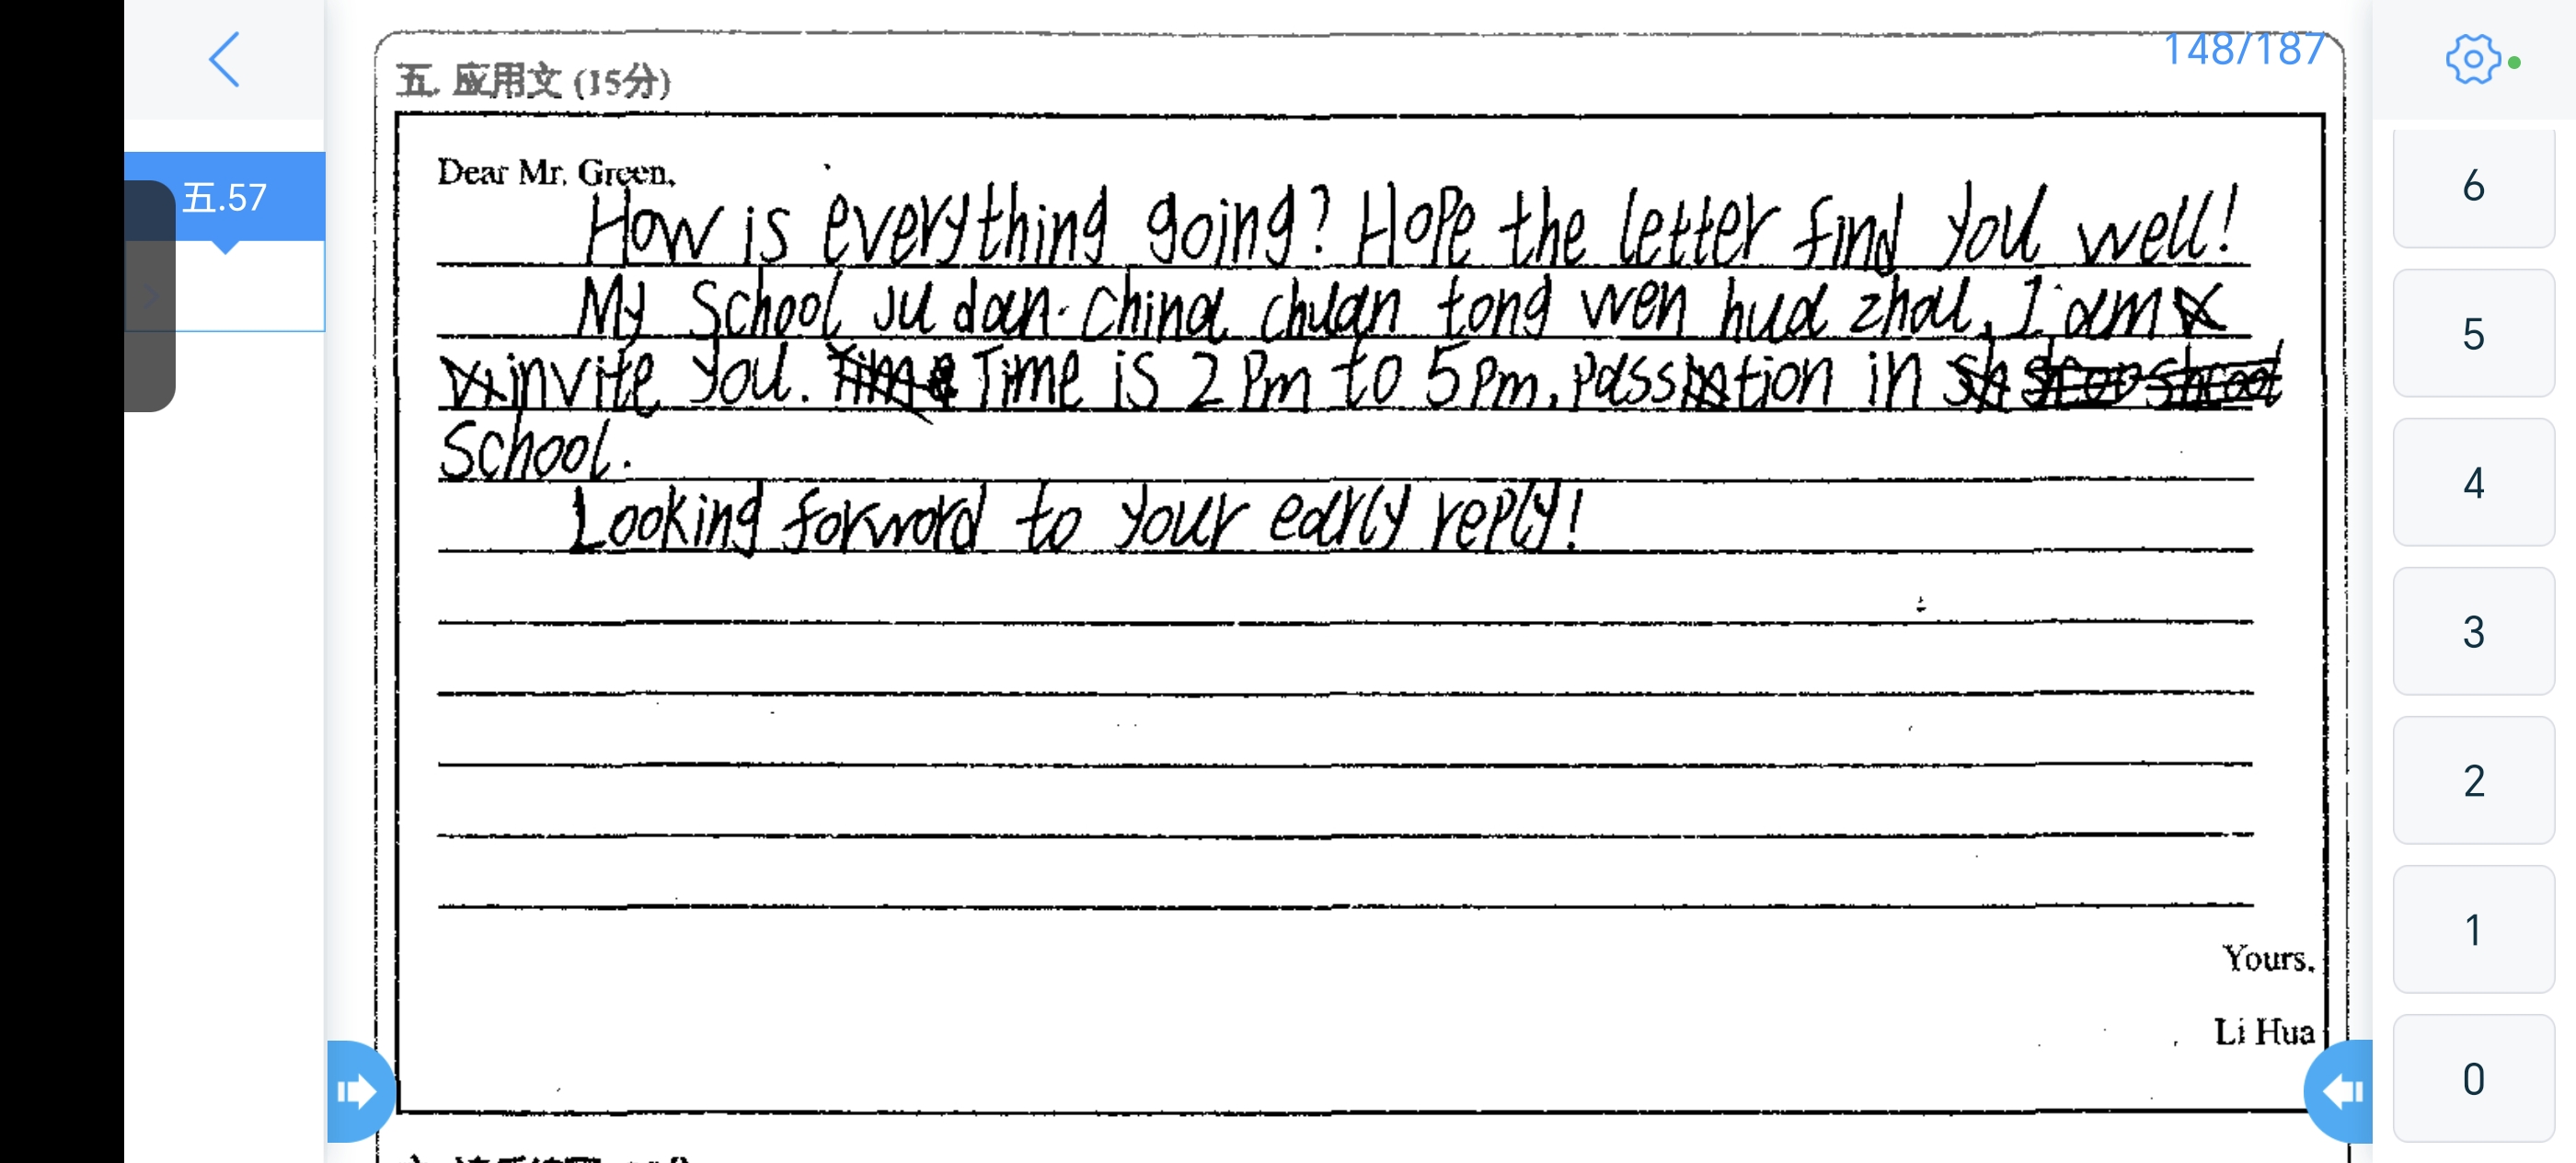 148/187
五. 应用文 (15分)
五.57
Dear Mr. Green,
How is everything going? Hope the letter find you well!
My School Ju dan. China chuan tong wen hua zhou, I am
invite you. Time Time is 2 Pm to 5 Pm, Passtion in
School.
Looking forword to your early reply!
Yours,
Li Hua
6
5
4
3
2
1
0